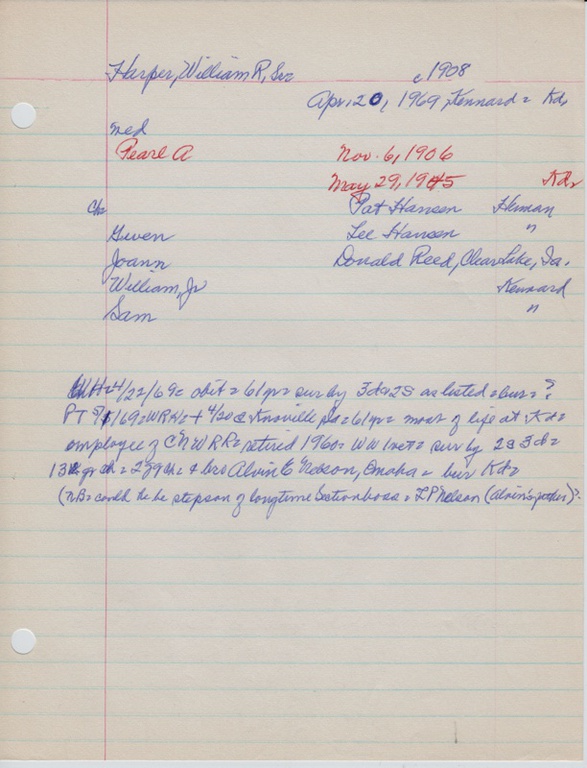 Harper, William R, Sr= c 1908
Apr. 20, 1969, Kennard = Kd=
med
Pearl A Nov. 6, 1906
May 29, 1945 Kd=
Ch= Pat Hansen Herman
Gwen Lee Hansen "
Joann Donald Reed, Clear Lake, Ia.
William, Jr Kennard
Sam "
4/22/69= obit = 61 yr = sur by 3d=2S as listed = bur = ?
PT 5/1/69=WRH= + 4/20 @ Knoxville = 61 yr = most of life at Kd=
employee of C&NWRR= retired 1960= WW 1 vet = sur by 2s 3d=
13 gr ch = 2 gg ch = & bro Alvin E Nelson, Omaha = bur Kd=
(NB= could he be stepson of longtime section boss = L.P. Nelson (Alvin's father)?